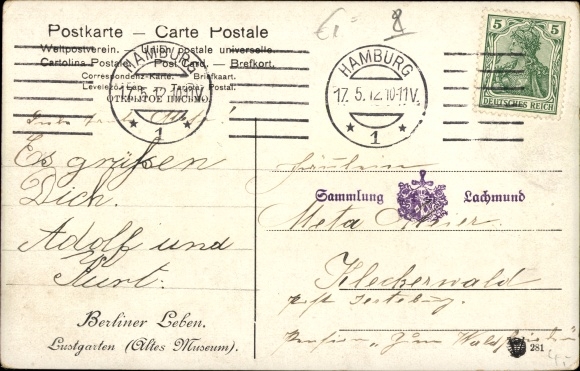 Postkarte — Carte Postale
Weltpostverein. — Union postale universelle.
Cartolina Postale — Post Card. — Brefkort.
Correspondenz-Karte. — Briefkaart.
Levelező-Lap. — Tarjeta Postal.
ОТКРЫТОЕ ПИСЬМО.
HAMBURG
17.5.12.10-11V.
* 1 *
HAMBURG
17.5.12.10-11V.
* 1 *
5 5
DEUTSCHES REICH
Es grüßen
Dich.
Adolf und
Kurt.
Fräulein
Sammlung Lachmund
Meta
Kleckerwald
Pension "Zum
Berliner Leben.
Lustgarten (Altes Museum).
281